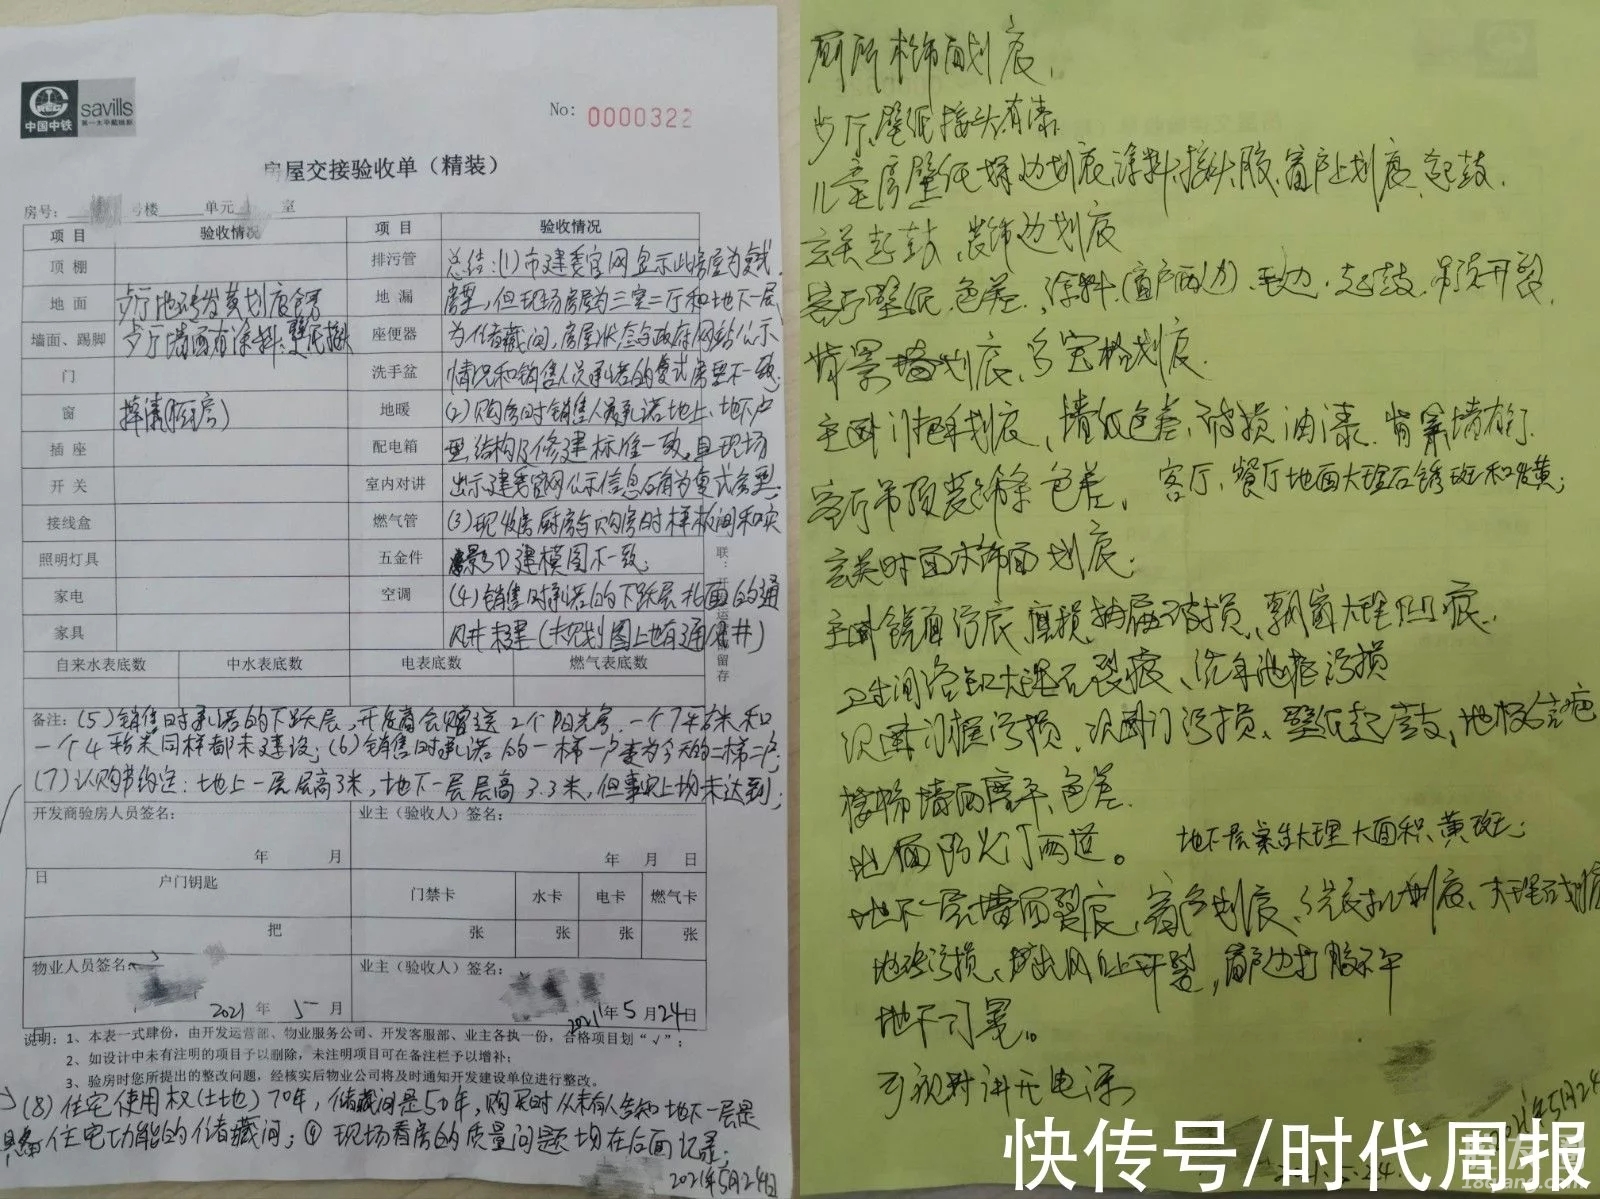 中国中铁
savills
第一太平戴维斯
No: 0000322
房屋交接验收单（精装）
房号： 号楼 单元 室
项 目 验收情况 项 目 验收情况
顶 棚 排污管 总结:(1)市建委官网显示此房屋为复式
地 面 地 漏 房型，但现场房屋为三室二厅和地下一层
墙面、踢脚 座便器 为储藏间，房屋状态与政府网站公示
门 洗手盆 情况和销售人员承诺的复式房型不一致
窗 掉漆 地暖 (2)购房时销售人员承诺地上、地下户
插 座 配电箱 型结构及修建标准一致，且现场
开 关 室内对讲 出示建委官网公示信息
接线盒 燃气管 (3)现收房厨房与购房时样板间和实
照明灯具 五金件 景3D建模图不一致;
家电 空调 (4)销售时承诺的下跃层 的通
家具 风井未建(未规划图上也有通风井)
自来水表底数 中水表底数 电表底数 燃气表底数
备注：(5)销售时承诺的下跃层，开发商会赠送2个阳光房，一个7平方米和
一个4平方米同样都未建设；(6)销售时承诺的一梯一户变为今天的二梯二户;
(7)认购书约定：地上一层层高3米，地下一层层高3.3米，但事实上均未达到;
开发商验房人员签名： 业主（验收人）签名：
年 月 日 年 月 日
户门钥匙 门禁卡 水卡 电卡 燃气卡
把 张 张 张 张
物业人员签名： 业主（验收人）签名：
2021年 5 月 日 2021年5月24日
说明：1、本表一式肆份，由开发运营部、物业服务公司、开发客服部、业主各执一份，合格项目划“√”；
2、如设计中未有注明的项目予以删除，未注明项目可在备注栏予以增补；
3、验房时您所提出的整改问题，经核实后物业公司将及时通知开发建设单位进行整改。
(8)住宅使用权(土地)70年，储藏间是50年，购买时从未有人告知地下一层是
具备住宅功能的储藏间；⑨现场看房的质量问题均在后面记录;
2021年5月24日
厕所木饰面划痕，
步厅壁纸接头有漆
玄关起鼓，装饰边划痕
客厅壁纸色差，涂料(窗户两边)毛边，起鼓，吊顶开裂，
背景墙划痕，多宝格划痕．
主卧门把手划痕，墙纸色差，破损油漆，背景墙有钉
客厅吊顶装饰条色差，客厅、餐厅地面大理石锈斑和发黄；
玄关对面木饰面划痕；
主卧镜面污痕，磨损，抽屉破损，飘窗大理凹痕．
卫生间浴缸大理石裂痕、洗手池柜污损
次卧门框污损，次卧门污损、壁纸起鼓，地板结疤
楼梯墙面磨平，色差．
地面防火门两道。 地下层 大理 大面积黄斑；
地下一层墙面裂痕，窗台划痕，大理石划痕
地砖污损、 出风口上开裂，窗户边打胶不平
可视对讲无电源
2021年5月24
2021.5.24
快传号/时代周报